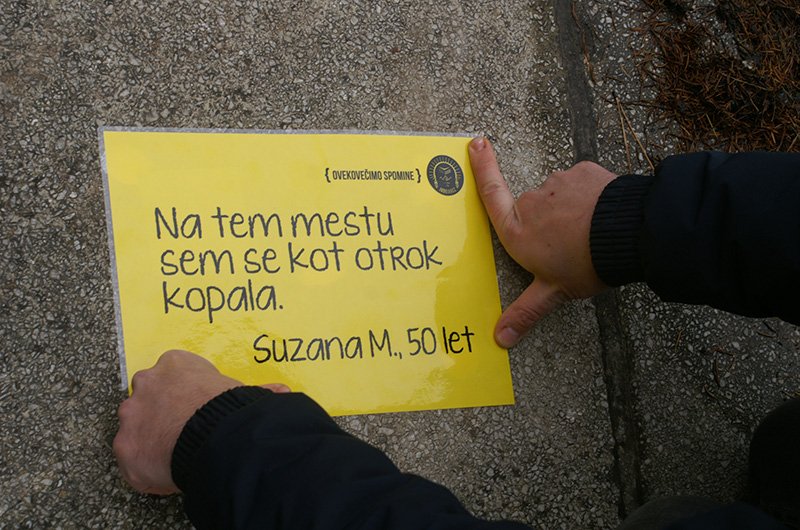 { OVEKOVEČIMO SPOMINE }
Na tem mestu
sem se kot otrok
kopala.
Suzana M., 50 let